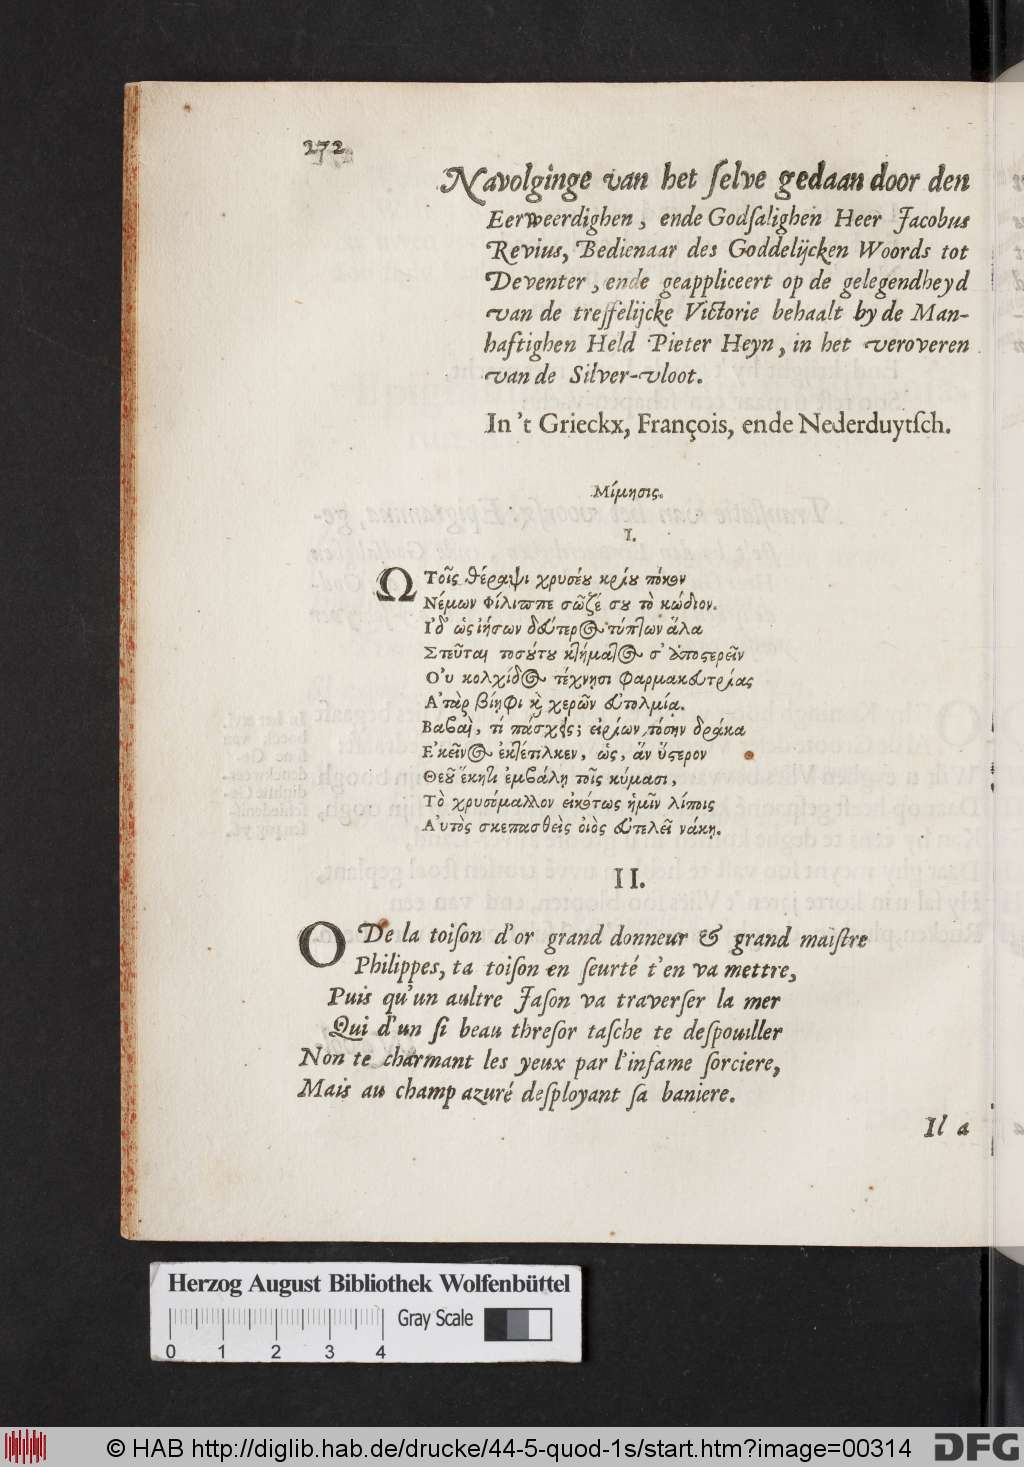 272
Navolginge van het ſelve gedaan door den
Eerweerdighen, ende Godſalighen Heer Jacobus
Revius, Bedienaar des Goddelijcken Woords tot
Deventer, ende geappliceert op de gelegendheyd
van de treffelijcke Victorie behaalt by de Man-
haftighen Held Pieter Heyn, in het veroveren
van de Silver-vloot.
In 't Grieckx, François, ende Nederduytſch.
Μίμησις.
I.
Ω Τοῖς θέραψι χρυσέου κριου πόκον
Νέμων Φίλιππε σῶζέ σου τὸ κώδιον.
Ιδ' ὡς ἰήσων δεύτερος τύπτων ἅλα
Σπεῦται τοσούτου κλήματος σ' ἀποστερεῖν
Ού κολχίδος τέχνησι φαρμακευτρίας
Α'τὰρ βίηφι καὶ χερῶν εὐτολμία.
Βαβαὶ, τί πάσχεις; εἰρίων τόσην δράκα
Ε'κεῖνος ἐκτέτιλκεν, ὡς, ἂν ὕστερον
Θεοῦ ἕκητι ἐμβάλη τοῖς κύμασι,
Τὸ χρυσόμαλλον εἰκότως ἡμῖν λίποις
Α'υτὸς σκεπασθεὶς οἰὸς εὐτελεῖ νάκη.
II.
O De la toiſon d'or grand donneur & grand maiſtre
Philippes, ta toiſon en ſeurté t'en va mettre,
Puis qu'un aultre Jaſon va traverſer la mer
Qui d'un ſi beau threſor taſche te deſpouiller
Non te charmant les yeux par l'infame ſorciere,
Mais au champ azuré deſployant ſa baniere.
Il a
Herzog August Bibliothek Wolfenbüttel
Gray Scale
0 1 2 3 4
© HAB http://diglib.hab.de/drucke/44-5-quod-1s/start.htm?image=00314
DFG